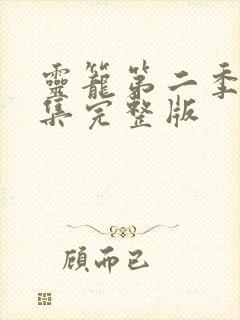 靈籠第二季
集完整版
顾而已